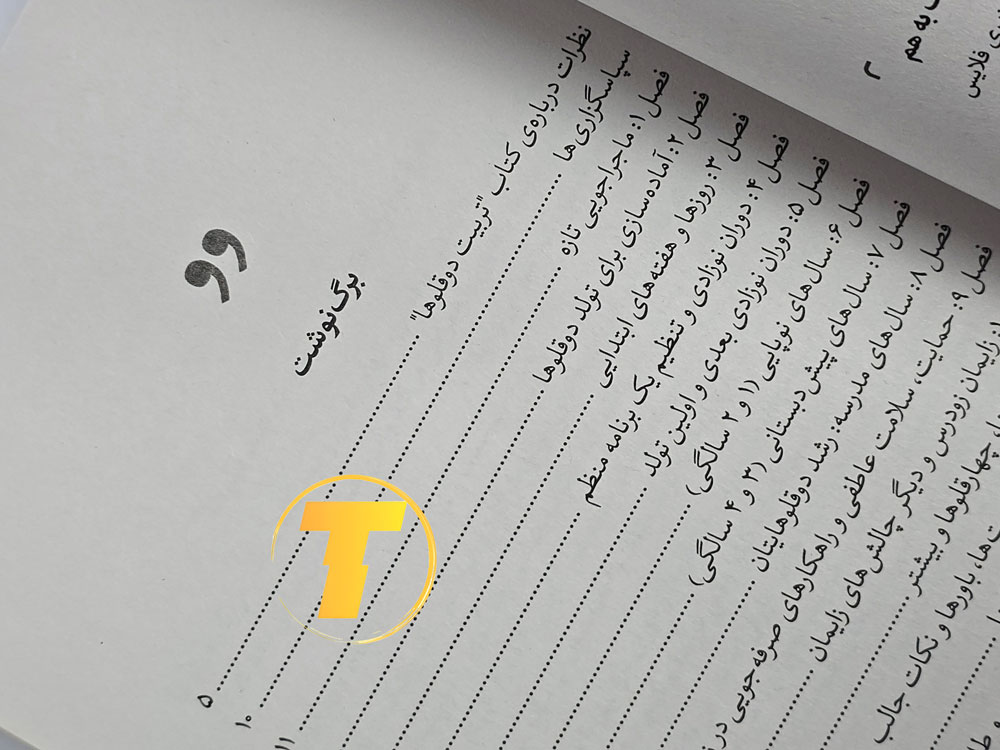 برگ‌نوشت
نظرات درباره‌ی کتاب "تربیت دوقلوها" ۵
سپاسگزاری ها ۱۰
فصل ۱: ماجراجویی تازه ۱۱
فصل ۲: آماده‌سازی برای تولد دوقلوها
فصل ۳: روزها و هفته‌های ابتدایی
فصل ۴: دوران نوزادی و تنظیم یک برنامه منظم
فصل ۵: دوران نوزادی بعدی و اولین تولد
فصل ۶: سال‌های نوپایی (۱ و ۲ سالگی)
فصل ۷: سال‌های پیش دبستانی (۳ و ۴ سالگی)
فصل ۸: سال‌های مدرسه: رشد دوقلوهایتان
فصل ۹: حمایت، سلامت عاطفی و راهکارهای صرفه جویی در
زایمان زودرس و دیگر چالش‌های زایمان
چهارقلوها و بیشتر
باورها و نکات جالب
به هم
فلایس
۲
T